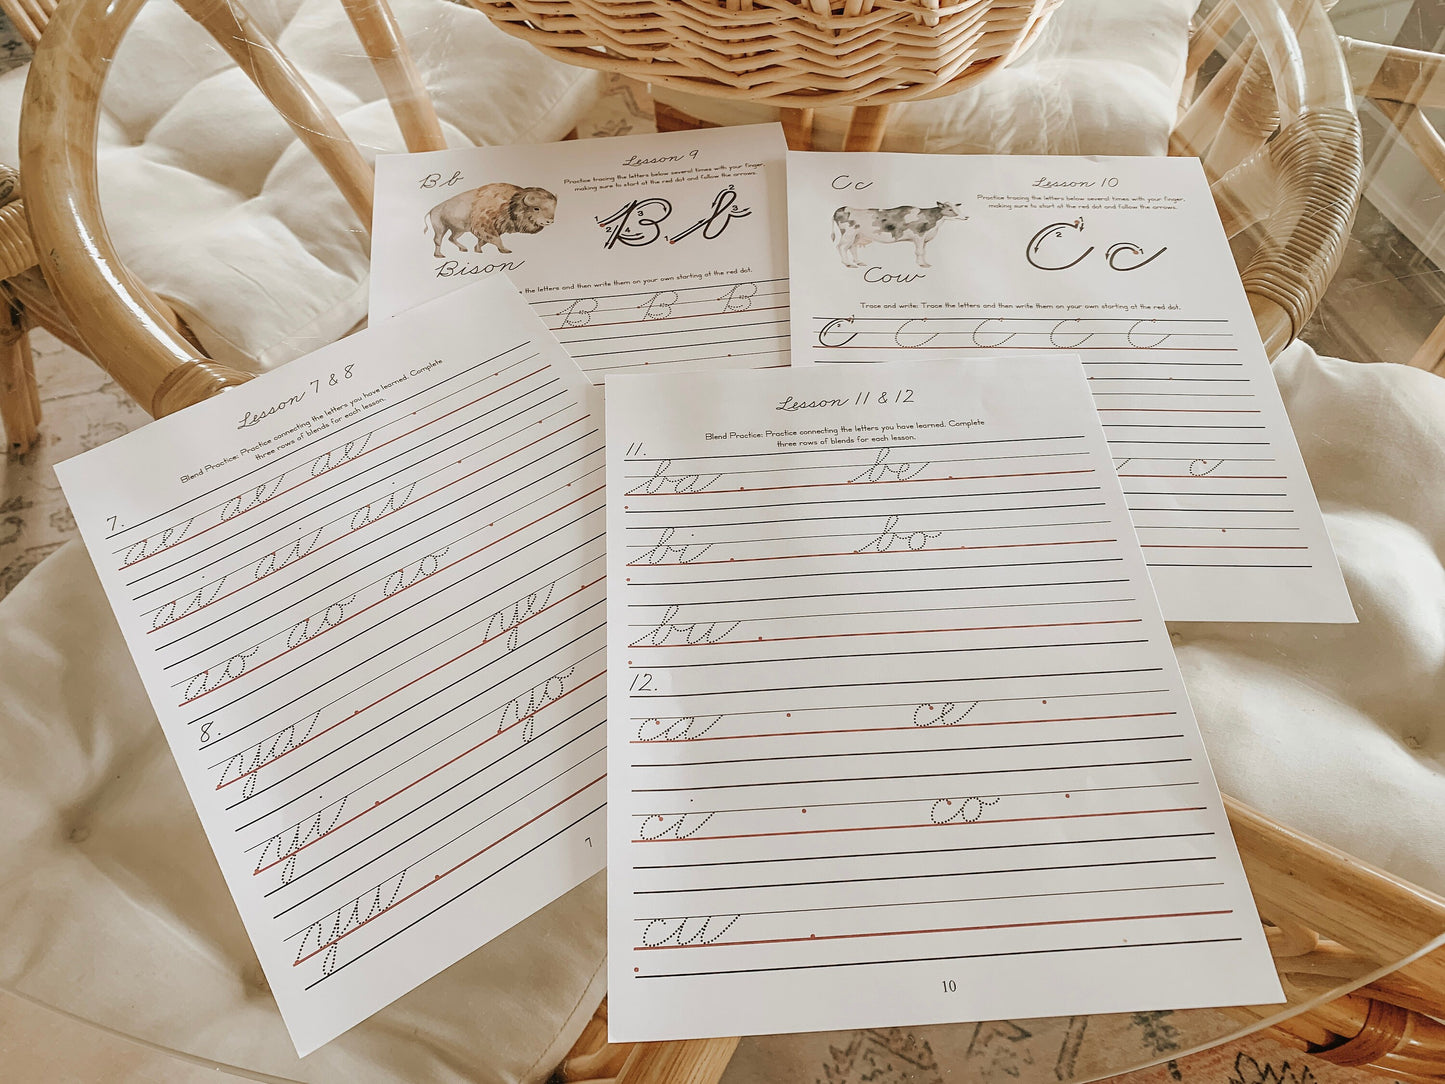 Bb
Bison
Lesson 9
Practice tracing the letters below several times with your finger,
making sure to start at the red dot and follow the arrows.
B b
the letters and then write them on your own starting at the red dot.
B B B
Cc
Cow
Lesson 10
Practice tracing the letters below several times with your finger,
making sure to start at the red dot and follow the arrows.
C c
Trace and write: Trace the letters and then write them on your own starting at the red dot.
C C C C C
c
Lesson 7 & 8
Blend Practice: Practice connecting the letters you have learned. Complete
three rows of blends for each lesson.
7.
ae ae ae
ai ai ai
ao ao ao
8.
ya ye
yi yo
yu
7
Lesson 11 & 12
Blend Practice: Practice connecting the letters you have learned. Complete
three rows of blends for each lesson.
11.
ba be
bi bo
bu
12.
ca ce
ci co
cu
10